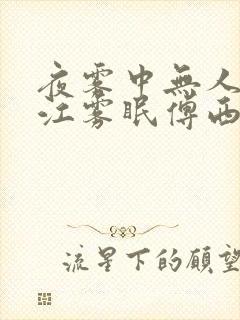 夜雾中無人
江雾眠傅西
流星下的願望